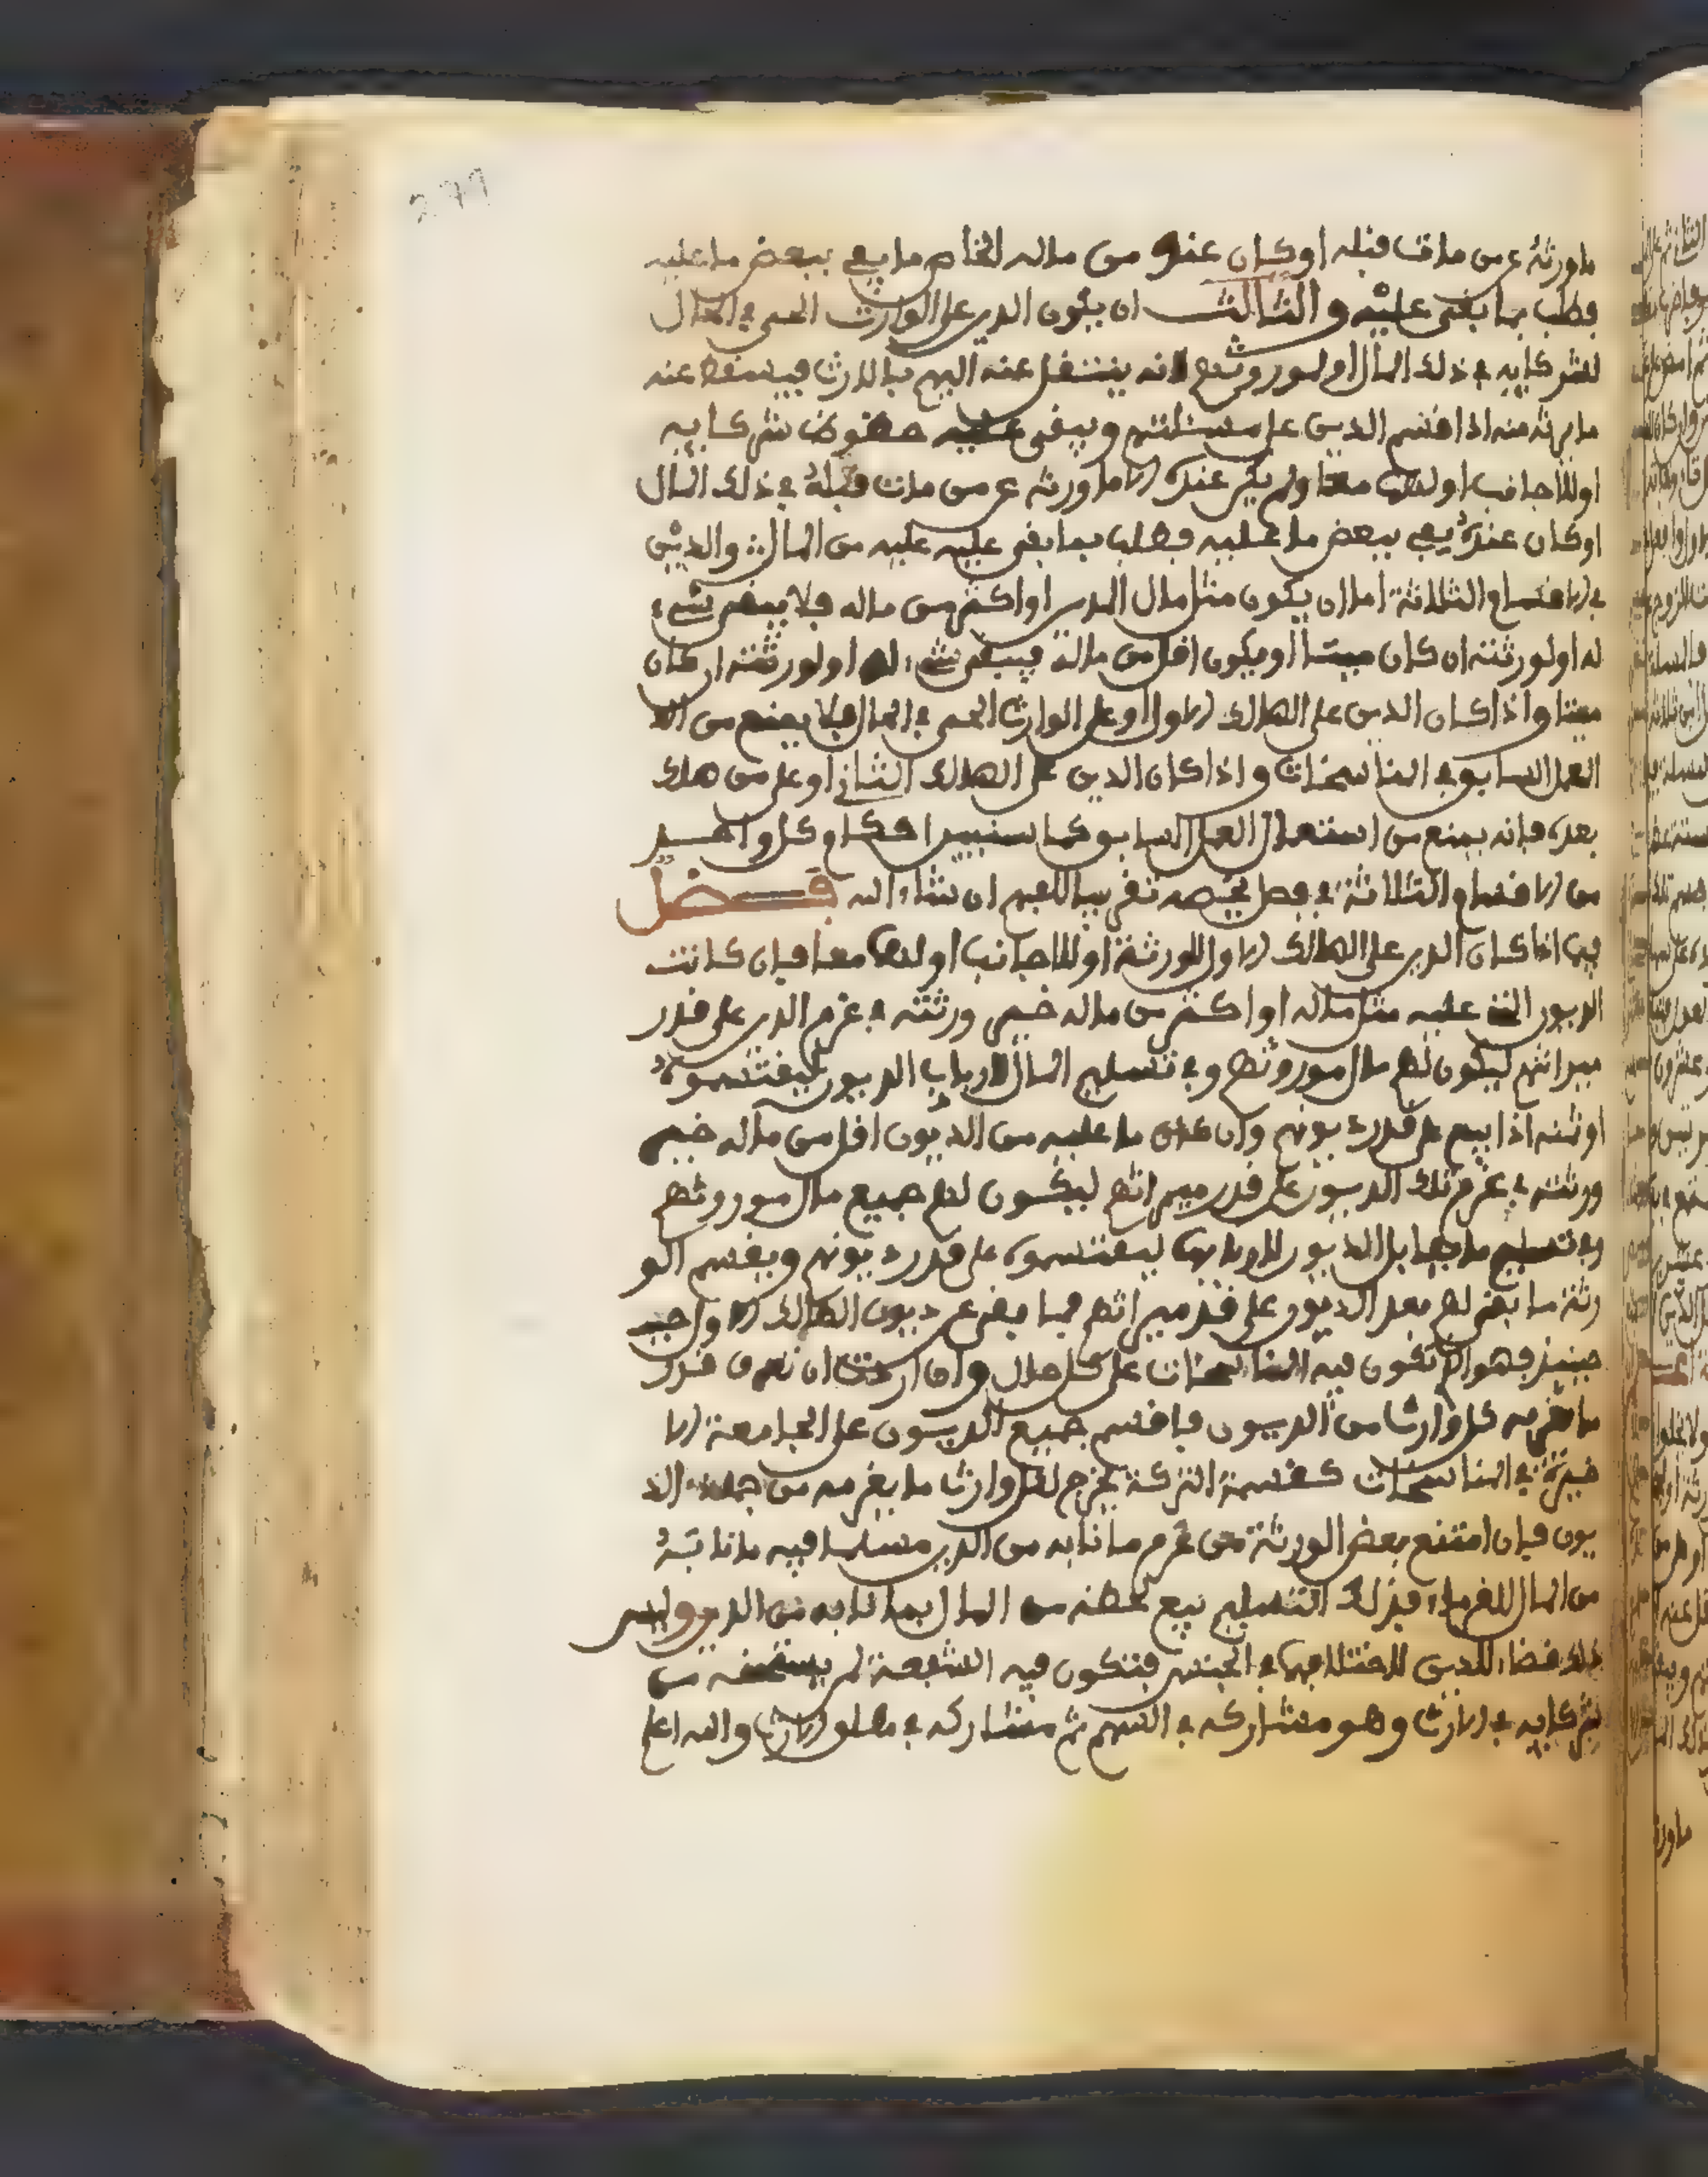 279
ماورثه عن من مات قبله او كان عنده من ماله الخاص ما يفي ببعض ما عليه
فطلب بما بقي عليه والثالث ان يكون الدين على الوارث الحي في الحال
لشركايه في ذلك المال او لموروثهم لانه ينتقل عنه اليهم بالارث فيسقط عنه
ما يرثه منه اذا اقتسم الدين على مسئلتهم ويبقى عليه حظوظ شركايه
او للاجانب او لهما معا ولم يكن عنده الا ما ورثه عن من مات قبله في ذلك المال
او كان عنده يفي ببعض ما عليه فطلب بما بقي عليه عليه من المال والدين
في الاقسام الثلاثة اما ان يكون مثل مال المدين او اكثر من ماله فلا يبقى شيء
له او لورثته ان كان ميتا او يكون اقل من ماله فيبقى شيء له او لورثته ان كان
ميتا واذا كان الدين على الهالك الاول او على الوارث الحي في الحال فلا يمنع من
العمل السابق في المناسخات واذا كان الدين على الهالك الثاني او على من هلك
بعده فانه يمنع من استعمال العمل السابق كما سنبين احكام كل واحد
من الاقسام الثلاثة في فصل يخصه تقريبا للفهم ان شاء الله فصل
فيما اذا كان الدين على الهالك الاول للورثة او للاجانب او لهما معا فان كانت
الديون التي عليه مثل ماله او اكثر من ماله خير ورثته في غرم الدين على قدر
ميراثهم ليكون لهم مال موروثهم وفي تسليم المال لارباب الديون ليقتسموه
او ثمنه اذا بيع على قدر ديونهم وان كان ما عليه من الديون اقل من ماله خير
ورثته في غرم تلك الديون على قدر ميراثهم ليكون لهم جميع مال موروثهم
وفي تسليم ما يقابل الديون لاربابها ليقتسموه على قدر ديونهم ويقسم الو
رثة ما بقي لهم بعد الديون على قدر ميراثهم فيما بقي عن ديون الهالك الاول
حينئذ فهو الذي تكون فيه المناسخات على كل حال وان اردت ان تعرف قدر
ما يغرمه كل وارث من الديون فاقسم جميع الديون على الجامعة الا
خيرة في المناسخات كقسمة التركة يخرج لكل وارث ما يغرمه من جملة الد
يون فان امتنع بعض الورثة من غرم ما نابه من الدين مسلما فيه ما نابه
من المال للغرماء فذلك التسليم بيع لحظه من المال بما نابه من الدين وليس
ذلك قضاء للدين لاختلافهما في الجنس فتكون فيه الشفعة لمن يستحقه من
شركايه في الارث وهو مشاركه في السهم ثم مشاركه في مطلق الارث والله اعلم